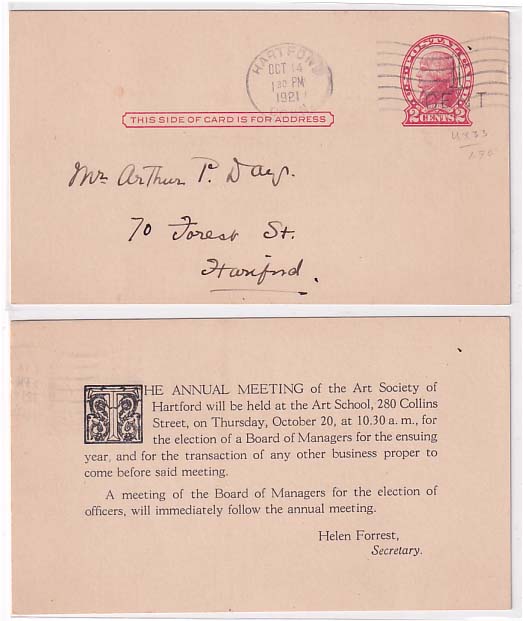 HARTFORD
OCT 14
1 30 PM
1921
CONN.
1
CENT
2 CENTS 2
THIS SIDE OF CARD IS FOR ADDRESS
U333
Mr. Arthur P. Day.
70 Forest St.
Hartford.
THE ANNUAL MEETING of the Art Society of
Hartford will be held at the Art School, 280 Collins
Street, on Thursday, October 20, at 10.30 a. m., for
the election of a Board of Managers for the ensuing
year, and for the transaction of any other business proper to
come before said meeting.
A meeting of the Board of Managers for the election of
officers, will immediately follow the annual meeting.
Helen Forrest,
Secretary.